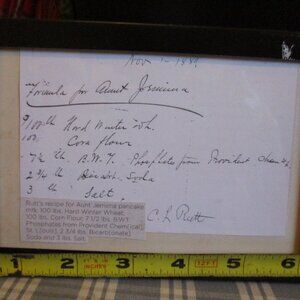 Nov 1 - 1889
Formula for Aunt Jemima
100 lb Hard Winter Wh.
100 Corn flour
7½ lb B.W.T. Phosphate from Provident Chem
2¾ lb Bicarb. Soda
3 lb Salt.
C. L. Rutt
Rutt's recipe for Aunt Jemima pancake
milk: 100 lbs. Hard Winter Wheat,
100 lbs. Corn Flour, 7 1/2 lbs. B.W.T.
Phosphates from Provident Chem[ical],
St. L[ouis], 2 3/4 lbs. Bicarb[onate]
Soda and 3 lbs. Salt.
1 2 3 4 5 6 7 8